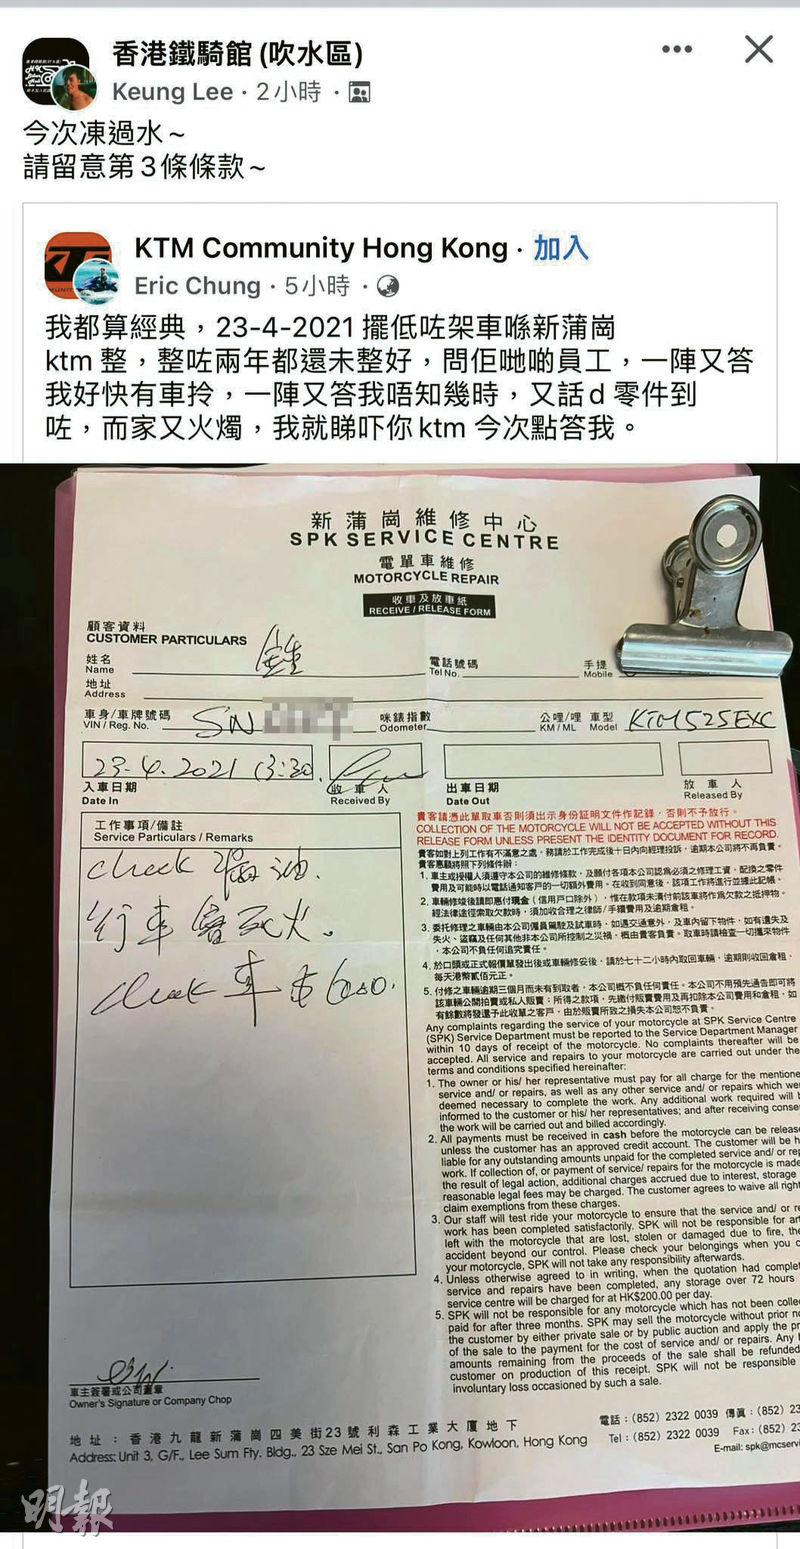 香港鐵騎館 (吹水區)
Keung Lee · 2小時 ·
今次凍過水~
請留意第3條條款~
KTM Community Hong Kong · 加入
Eric Chung · 5小時 ·
我都算經典，23-4-2021 擺低咗架車喺新蒲崗
ktm 整，整咗兩年都還未整好，問佢哋啲員工，一陣又答
我好快有車拎，一陣又答我唔知幾時，又話d 零件到
咗，而家又火燭，我就睇吓你ktm 今次點答我。
新蒲崗維修中心
SPK SERVICE CENTRE
電單車維修
MOTORCYCLE REPAIR
收車及放車紙
RECEIVE / RELEASE FORM
顧客資料
CUSTOMER PARTICULARS
姓名
Name
電話號碼
Tel No.
手提
Mobile
地址
Address
車身/車牌號碼
VIN / Reg. No.
SN
咪錶指數
Odometer
公哩/哩
KM / ML
車型
Model
KTM 525EXC
23.4.2021 13:30
入車日期
Date In
收車人
Received By
出車日期
Date Out
放車人
Released By
工作事項/備註
Service Particulars / Remarks
check 漏油.
行車會死火.
check 車 600.
貴客請憑此單取車否則須出示身份証明文件作記錄，否則不予放行。
COLLECTION OF THE MOTORCYCLE WILL NOT BE ACCEPTED WITHOUT THIS
RELEASE FORM UNLESS PRESENT THE IDENTITY DOCUMENT FOR RECORD.
貴客如對上列工作有不滿意之處，務請於工作完成後十日內向經理投訴，逾期本公司將不再負責。
貴客惠顧將照下列條件辦：
1. 車主或授權人須遵守本公司的維修條款，及願付各項本公司認為必須之修理工資，配換之零件
費用及可能時以電話通知客戶的一切額外費用。在收到同意後，該項工作將進行並據此記帳。
2. 車輛修竣後請即惠付現金（信用戶口除外），惟在款項未清付前該車將作為欠款之抵押物。
經法律途徑索取欠款時，須加收合理之律師/手續費用及逾期倉租。
3. 委托修理之車輛由本公司僱員駕駛及試車時，如遇交通意外，及車內留下物件，如有遺失及
失火、盜竊及任何其他非本公司所控制之災禍，概由貴客負責。取車時請檢查一切攜來物件
，本公司不負任何追究責任。
4. 於口頭或正式報價單發出後或車輛修妥後，請於七十二小時內取回車輛，逾期則收回倉租，
每天港幣貳佰元正。
5. 付修之車輛逾三個月而未有到取者，本公司概不負任何責任。本公司不用預先通告即可將
該車輛公開拍賣或私人販賣；所得之款項，先繳付販賣費用及再扣除本公司費用和倉租，如
有餘數將發還予此收單之客戶，由於販賣所致之損失本公司恕不負責。
Any complaints regarding the service of your motorcycle at SPK Service Centre
(SPK) Service Department must be reported to the Service Department Manager
within 10 days of receipt of the motorcycle. No complaints thereafter will be
accepted. All service and repairs to your motorcycle are carried out under the
terms and conditions specified hereinafter:
1. The owner or his/ her representative must pay for all charge for the mentione
service and/ or repairs, as well as any other service and/ or repairs which we
deemed necessary to complete the work. Any additional work required will b
informed to the customer or his/ her representatives; and after receiving conse
the work will be carried out and billed accordingly.
2. All payments must be received in cash before the motorcycle can be releas
unless the customer has an approved credit account. The customer will be h
liable for any outstanding amounts unpaid for the completed service and/ or rep
work. If collection of, or payment of service/ repairs for the motorcycle is made
the result of legal action, additional charges accrued due to interest, storage
reasonable legal fees may be charged. The customer agrees to waive all right
claim exemptions from these charges.
3. Our staff will test ride your motorcycle to ensure that the service and/ or re
work has been completed satisfactorily. SPK will not be responsible for art
left with the motorcycle that are lost, stolen or damaged due to fire, the
accident beyond our control. Please check your belongings when you c
your motorcycle, SPK will not take any responsibility afterwards.
4. Unless otherwise agreed to in writing, when the quotation had complet
service and repairs have been completed, any storage over 72 hours
service centre will be charged for at HK$200.00 per day.
5. SPK will not be responsible for any motorcycle which has not been colle
paid for after three months. SPK may sell the motorcycle without prior no
the customer by either private sale or by public auction and apply the pr
of the sale to the payment for the cost of service and/ or repairs. Any
amounts remaining from the proceeds of the sale shall be refunded
customer on production of this receipt. SPK will not be responsible
involuntary loss occasioned by such a sale.
車主簽署或公司蓋章
Owner's Signature or Company Chop
地址：香港九龍新蒲崗四美街23號利森工業大廈地下
Address: Unit 3, G/F., Lee Sum Fty. Bldg., 23 Sze Mei St., San Po Kong, Kowloon, Hong Kong
電話：(852) 2322 0039 傳真：(852) 23
Tel : (852) 2322 0039 Fax: (852) 23
E-mail: spk@mcserv
明報